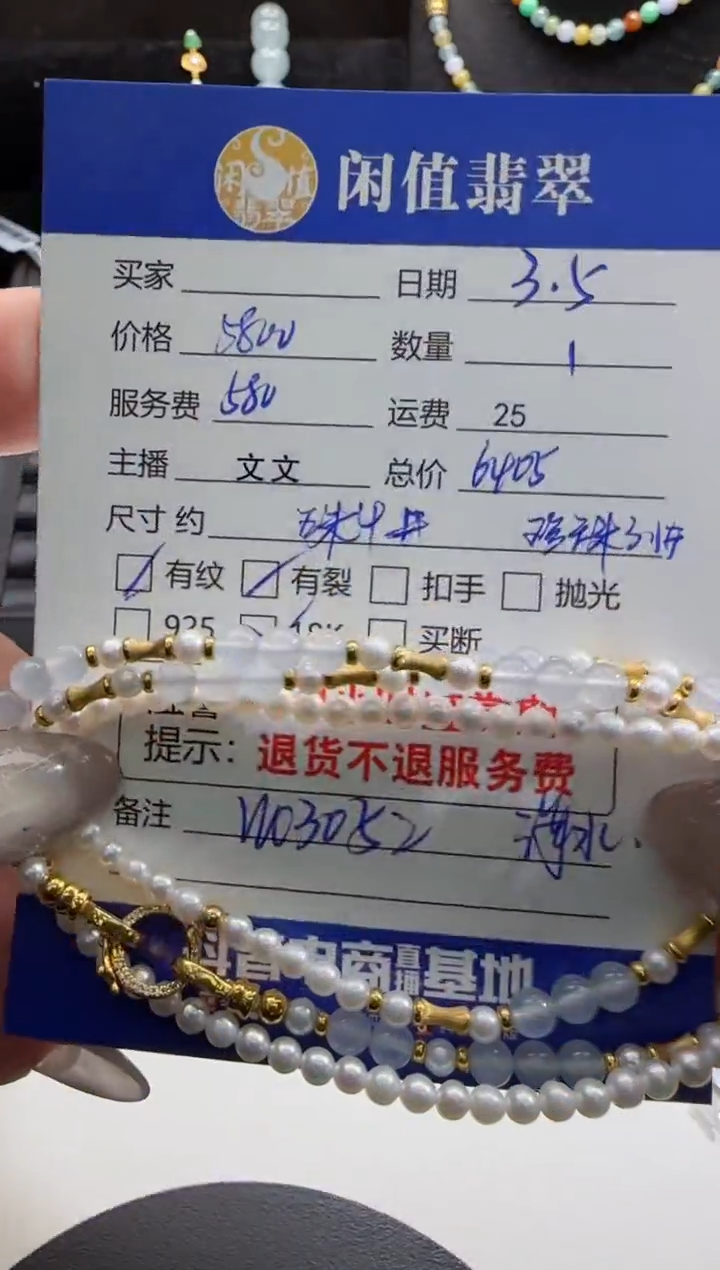 闲值翡翠
闲值翡翠
买家 日期 3.5
价格 5800 数量 1
服务费 580 运费 25
主播 文文 总价 6405
尺寸 约
有纹 有裂 扣手 抛光
925 18K 买断
提示: 退货不退服务费
备注 W03052
抖音电商直播基地